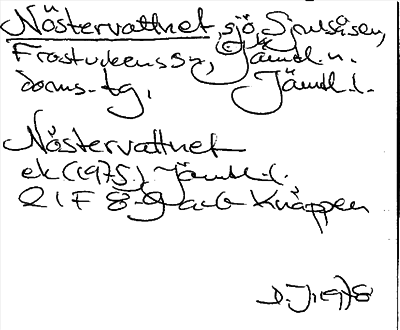 Nöstervattnet, sjö, Sjulsåsen,
Frostvikens sn, Jämtl. n.
doms.tg, Jämtl. l.
Nöstervattnet
ek (1975) Jämtl. l.
21 F 8-9 a-b Knäppen
D.J 1978